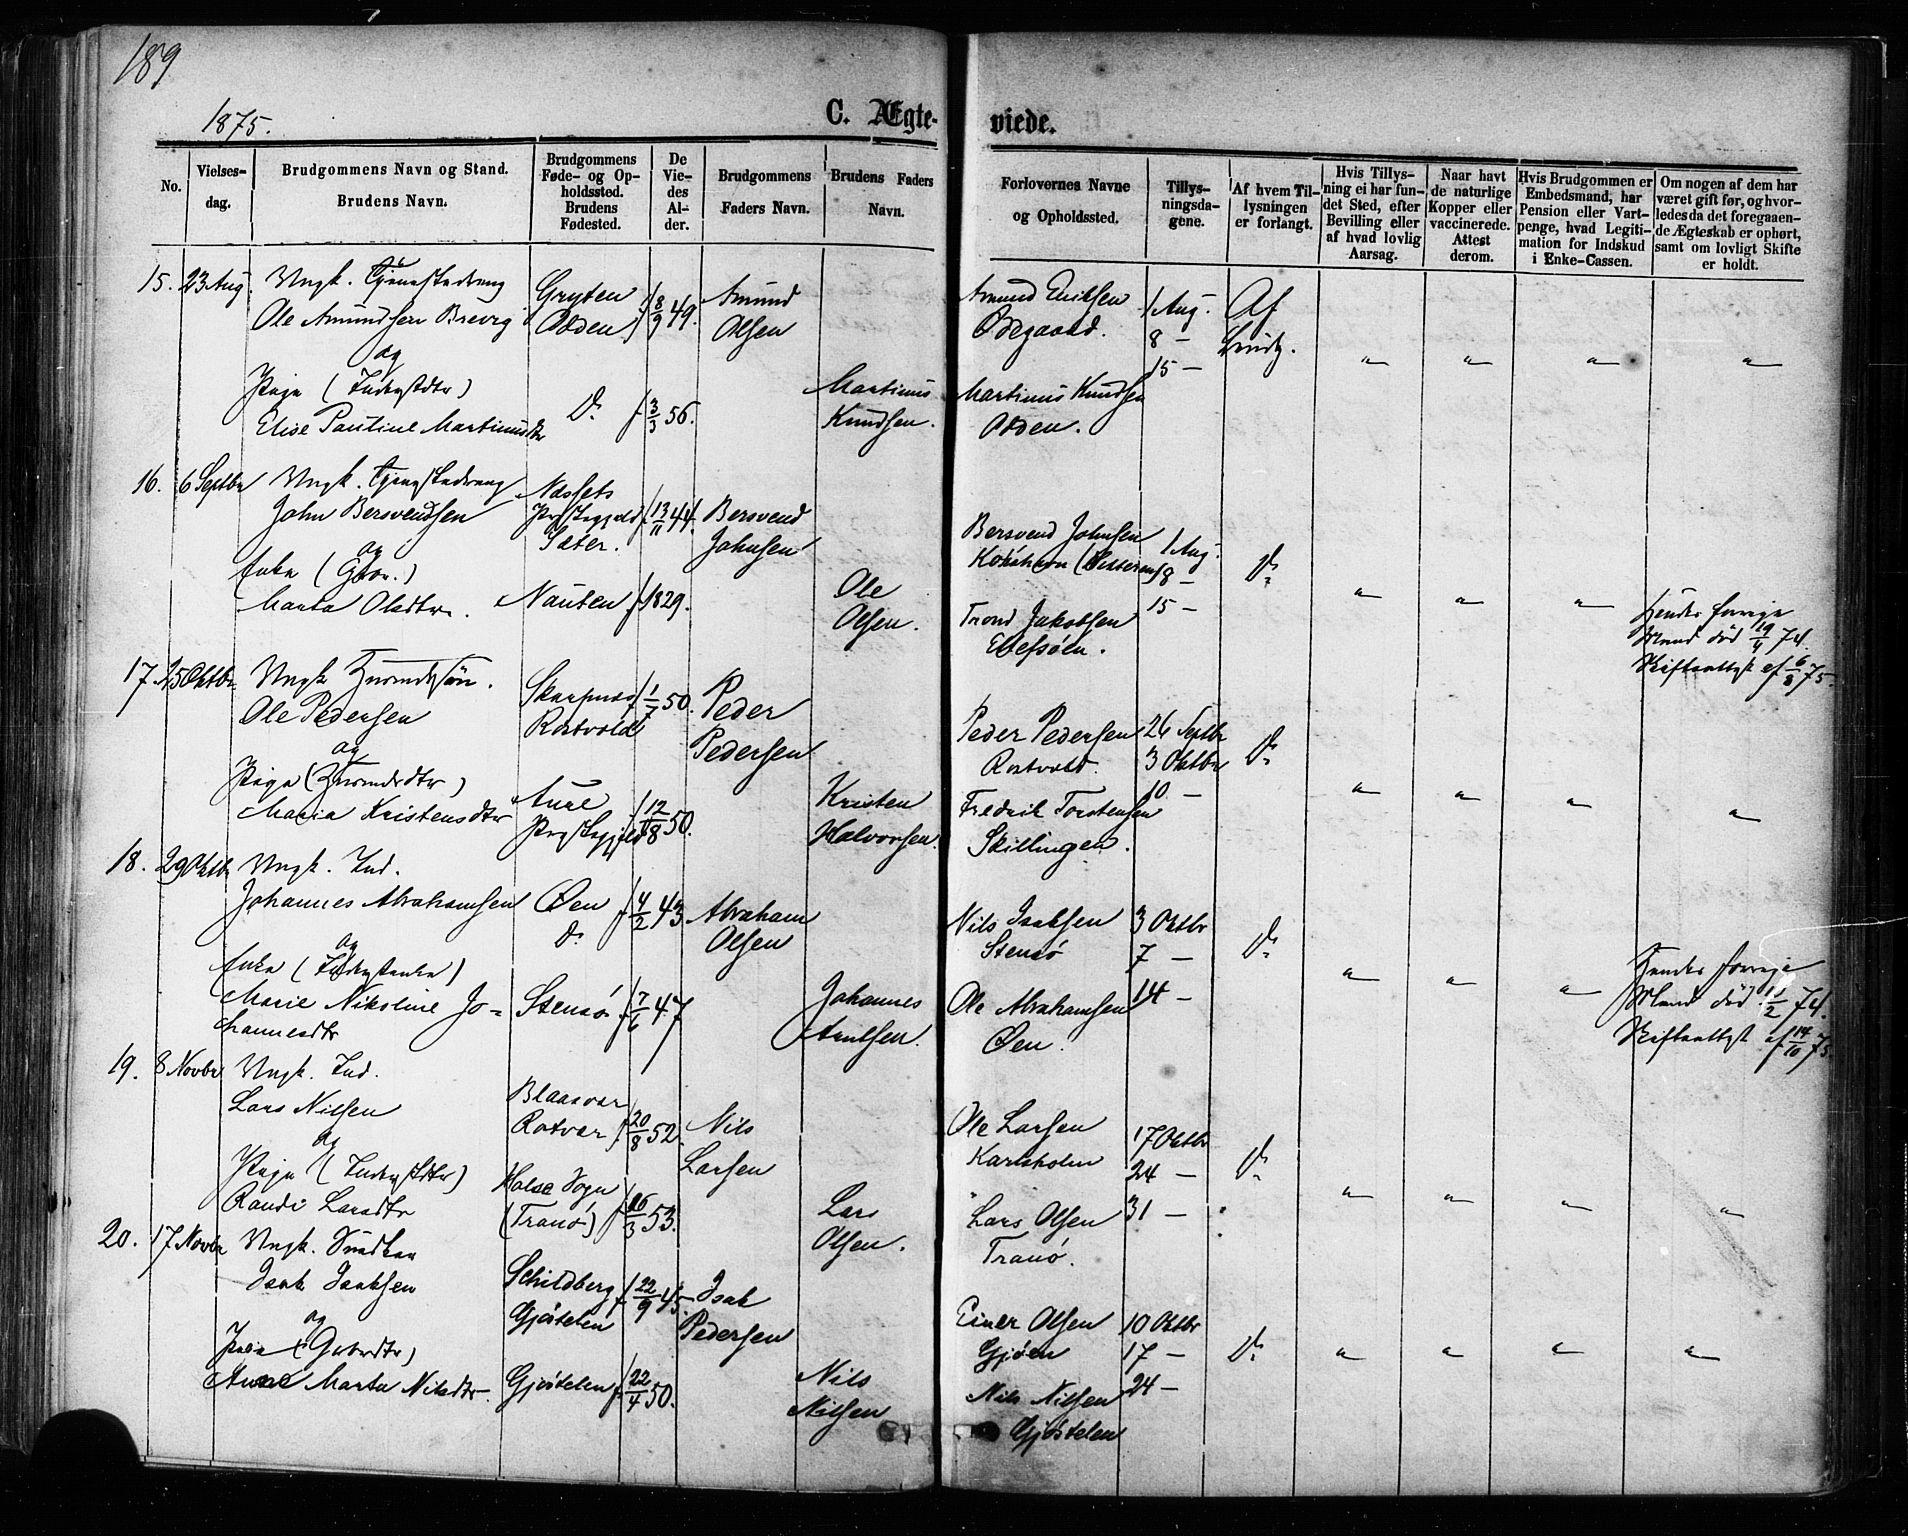 189
1875.
C. Ægte-
viede.
No.
Vielses-
dag.
Brudgommens Navn og Stand.
Brudens Navn.
Brudgommens
Føde- og Op-
holdssted.
Brudens
Fødested.
De
Vie-
des
Al-
der.
Brudgommens
Faders Navn.
Brudens Faders
Navn.
Forlovernes Navne
og Opholdssted.
Tillys-
ningsda-
gene.
Af hvem Til-
lysningen
er forlangt.
Hvis Tillys-
ning ei har fun-
det Sted, efter
Bevilling eller
af hvad lovlig
Aarsag.
Naar havt
de naturlige
Kopper eller
vaccinerede.
Attest
derom.
Hvis Brudgommen er
Embedsmand, har
Pension eller Vart-
penge, hvad Legiti-
mation for Indskud
i Enke-Cassen.
Om nogen af dem har
været gift før, og hvor-
ledes da det foregaaen-
de Ægteskab er ophørt,
samt om lovligt Skifte
er holdt.
15. 23 Aug. Ungk.
Ole Amundsen
Gryten
Odden
f 8/9 49.
Amund
Olsen
Amund
Ødegaard.
1 Aug.
8 —
15 —
Af
og
Pige
Elise Pautine Martinusdtr
Do
f 3/3 56.
Martinus
Knudsen.
Martinus Knudsen
Odden.
16. 6 Septbr Ungk.
John Bersvendsen
Næssets
Præstegjeld
Sæter.
f 13/11 44.
Bersvend
Johnsen
Bersvend Johnsen
1 Aug.
8 —
15 —
Do
og
Enke
Marta Olsdtr.
Nausten f 1829.
Ole
Olsen.
Trond Jakobsen
Hendes forrige
Mand død 19/4 74.
Skifteattest af 6/8 75.
17. 25 Oktbr Ungk.
Ole Pedersen
Skarpnæs
Rostvold
f 1/7 50.
Peder
Pedersen
Peder Pedersen
Rostvold.
26 Septbr
3 Oktbr
10 —
Do
og
Pige
Maria Kristensdtr
Aure
Præstegjeld
f 12/8 50.
Kristen
Halvorsen.
Fredrik Torstensen
Skillingen.
18. 29 Oktbr Ungk. Ind.
Johannes Abrahamsen
Øen
Do
f 4/2 43
Abraham
Olsen
Nils Isaksen
Stensø
3 Oktbr
7 —
14 —
Do
og
Enke
Marie Nikoline Jo-
hannesdtr
Stensø f 7/6 47
Johannes
Arntsen.
Ole Abrahamsen
Øen.
Hendes forrige
Mand død
Skifteattest af 14/10 75.
19. 8 Novbr Ungk. Ind.
Lars Nilsen
Blaasvær
Rotvær f 20/8 52.
Nils
Larsen
Ole Larsen
Karlsholm
17 Oktbr
24 —
31 —
Do
og
Pige
Randi Larsdtr
Halse Sogn
(Tranø) f 16/3 53.
Lars
Olsen.
Lars Olsen
Tranø.
20. 17 Novbr Ungk.
Isak Isaksen
Schildberg
Gjøstelen
f 22/9 45.
Isak
Pedersen
Einer Olsen
Gjøen
10 Oktbr
17 —
24 —
Do
og
Pige
Anne Marta Nilsdtr.
Gjøstelen f 22/4 50.
Nils
Nilsen
Nils Nilsen
Gjøstelen